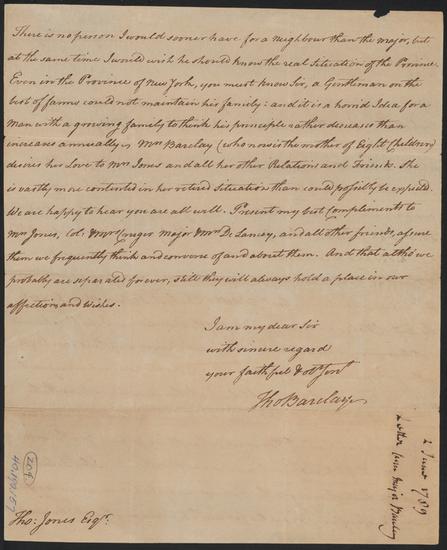 There is no person I would sooner have for a neighbour than the major, but
at the same time I would wish he should know the real Situation of the Province.
Even in the Province of New York, you must know Sir, a Gentleman on the
best of farms could not maintain his family: and it is a horrid Idea for a
Man with a growing family to think his principle rather decreases than
increases annually. Mrs Barclay (who now is the mother of Eight Children)
desires her Love to Mrs Jones and all her other Relations and Friends. She
is vastly more contented in her retired Situation than could possibly be expected.
We are happy to hear you are all well. Present my best Compliments to
Mrs Jones, Col: & Mrs Cruger Major & Mrs De Lancey, and all other friends, assure
them we frequently think and converse of and about them. And that altho' we
probably are separated forever, still they will always hold a place in our
affections and wishes.
I am my dear Sir
with sincere regard
your faithful & obt Servt
Tho Barclay
Tho: Jones Esqr.
204
2 June 1789
Letter from Major Barclay